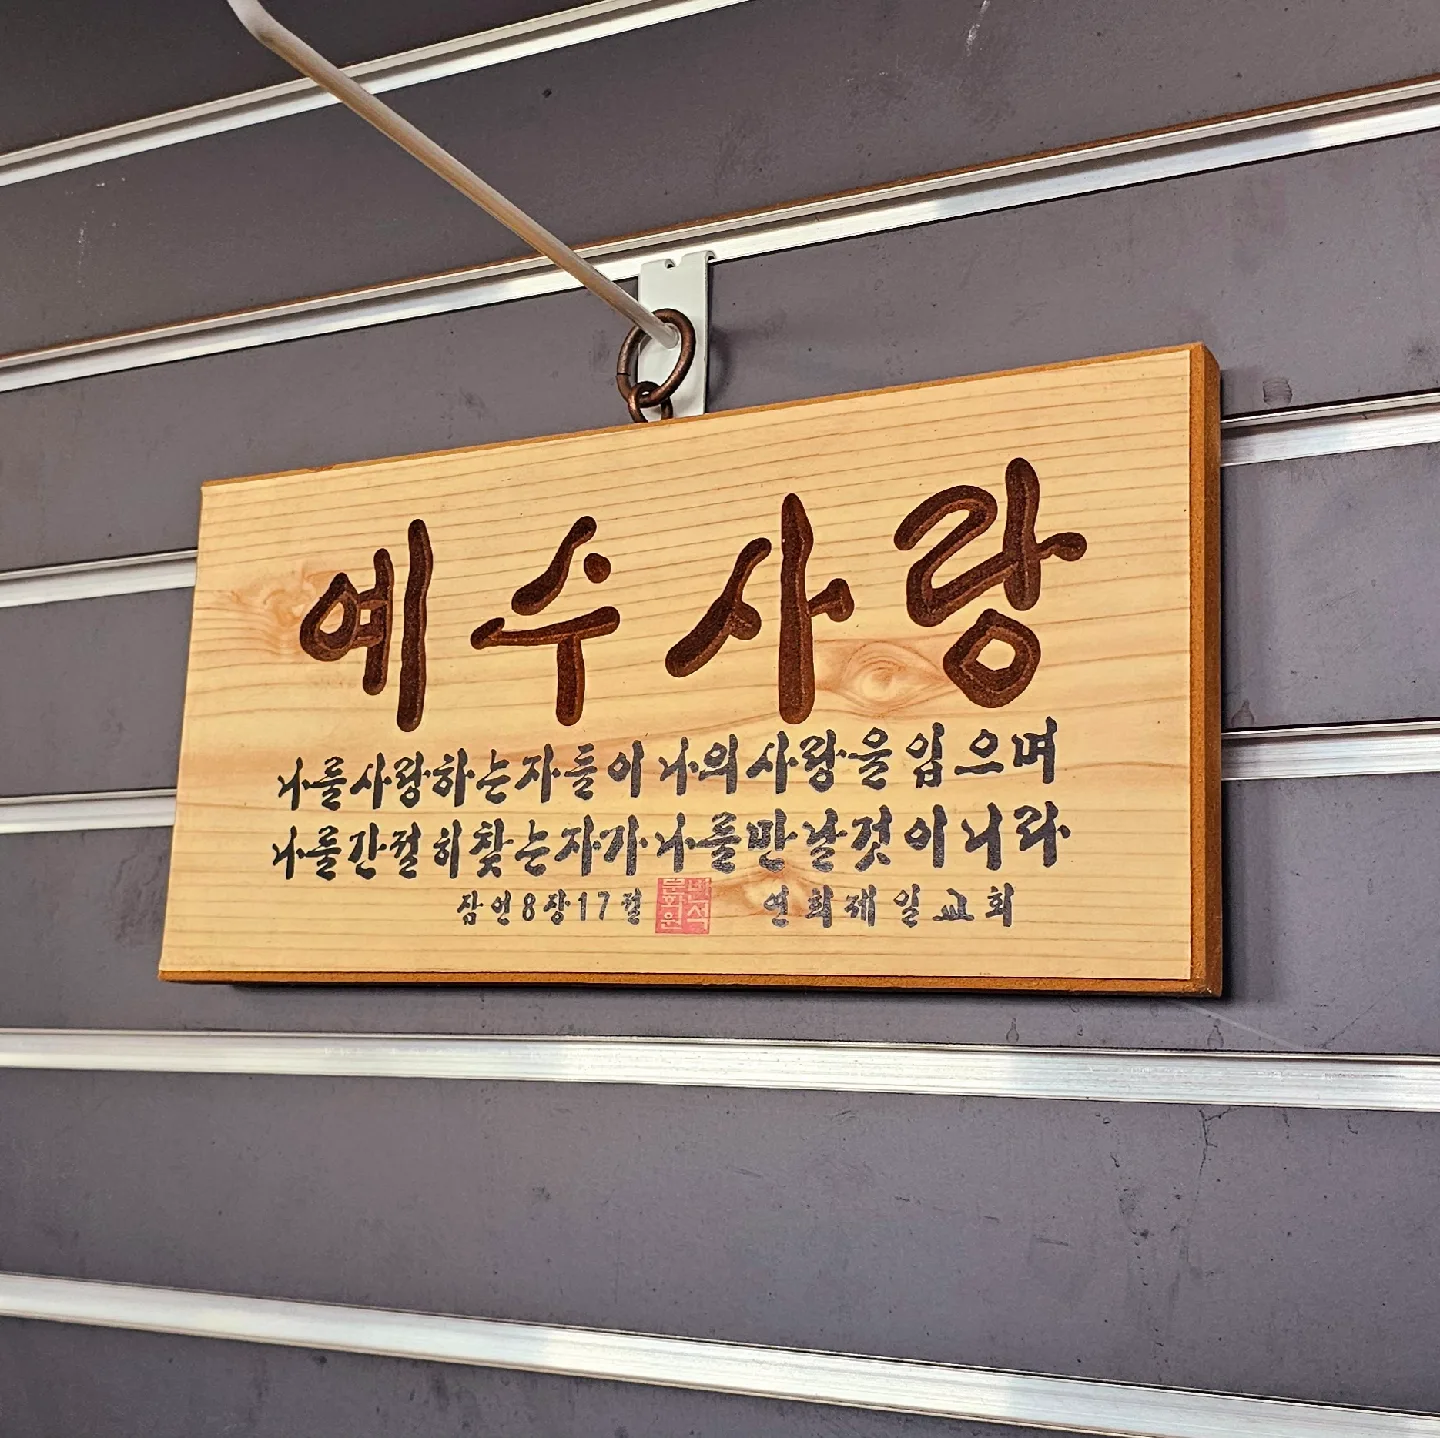 예수사랑
나를사랑하는자들이 나의사랑을 입으며
나를간절히찾는자가 나를만날것이니라
잠언8장17절 반석문화원 연희제일교회